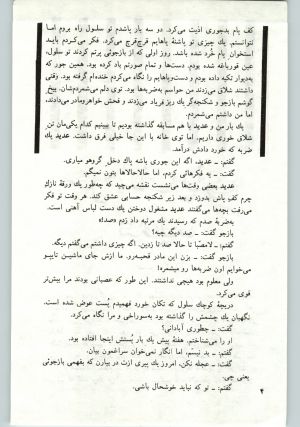 کف پام بدجوری اذیت می‌کرد. دو سه بار پاشدم تو سلول راه بروم اما
نتوانستم. یك چیزی تو پاشنهٔ پاهایم قرچ‌قرچ می‌کرد. فکر می‌کردم باید
استخوان پام خرد شده باشد. روز اولی که از بازجوئی برتم کردند تو سلول،
عین قورباغه شده بودم. دست‌ها و تمام صورتم باد کرده بود. همین جور که
به‌دیوار تکیه داده بودم و دست‌وپاهایم را نگاه می‌کردم خنده‌ام گرفته بود. وقتی
داشتند شلاق می‌زدند من حواسم به‌ضربه‌ها بود. توی دلم می‌شمردم‌شان. بیخ
گوشم بازجو و شکنجه‌گر یك‌ریز فریاد می‌زدند و فحش خواهرومادر می‌دادند،
اما من داشتم می‌شمردم.
یك بار من و عدید با هم مسابقه گذاشته بودیم تا ببینیم کدام یکی‌مان تن
شلاق خوری داریم. اما توی خانه با این جا خیلی فرق داشت. عدید یك
ضربه که خورد دادش درآمد.
گفتم: ــ عدید، اگه این جوری باشه یك دخل گروهو میاری.
گفت: ــ یه فکرهائی کردم. اما حالاحالاها بتون نمیگم.
عدید بعضی وقت‌ها می‌نشست نقشه می‌چید که چه‌طور یك ورقهٔ نازك
چرم کف پاش بدوزد و بعد زیر شکنجه حسابی عشق کند. هر وقت تو فکر
می‌رفت بچه‌ها می‌گفتند عدید مشغول دوختن یك دست لباس آهنی است.
به‌ضربهٔ صدم که رسیدند مرتبه داد زدم «صد!»
بازجو گفت: ــ صد دیگه چیه؟
گفتم: ــ لامصبا تا حالا صد تا زدین. اگه چیزی داشتم می‌گفتم دیگه.
بازجو گفت: ــ بزن این مادر قحبه‌رو. ما ازش جای ماشین تایپو
می‌خوایم اون ضربه‌ها رو میشمره!
ولی معلوم بود هیجی ندانستند. این طور که عصبانی بودند مرا بیش‌تر
قوی می‌کرد.
دریچهٔ کوچك سلول که تکان خورد فهمیدم پُست عوض شده است.
نگهبان یك چشمش را گذاشته بود به‌سوراخی و مرا نگاه می‌کرد.
گفت: ــ چطوری آبادانی؟
او را می‌شناختم. هفتهٔ پیش یك بار پُستش اینجا افتاده بود.
گفتم: ــ بد نیستم، اما انگار نمی‌خوان سراغمون بیان.
گفت: ــ عجله نکن، امروز یك ببری ازت در بیارن که بفهمی بازجوئی
یعنی چی.
گفتم: ــ تو که نباید خوشحال باشی.
۴